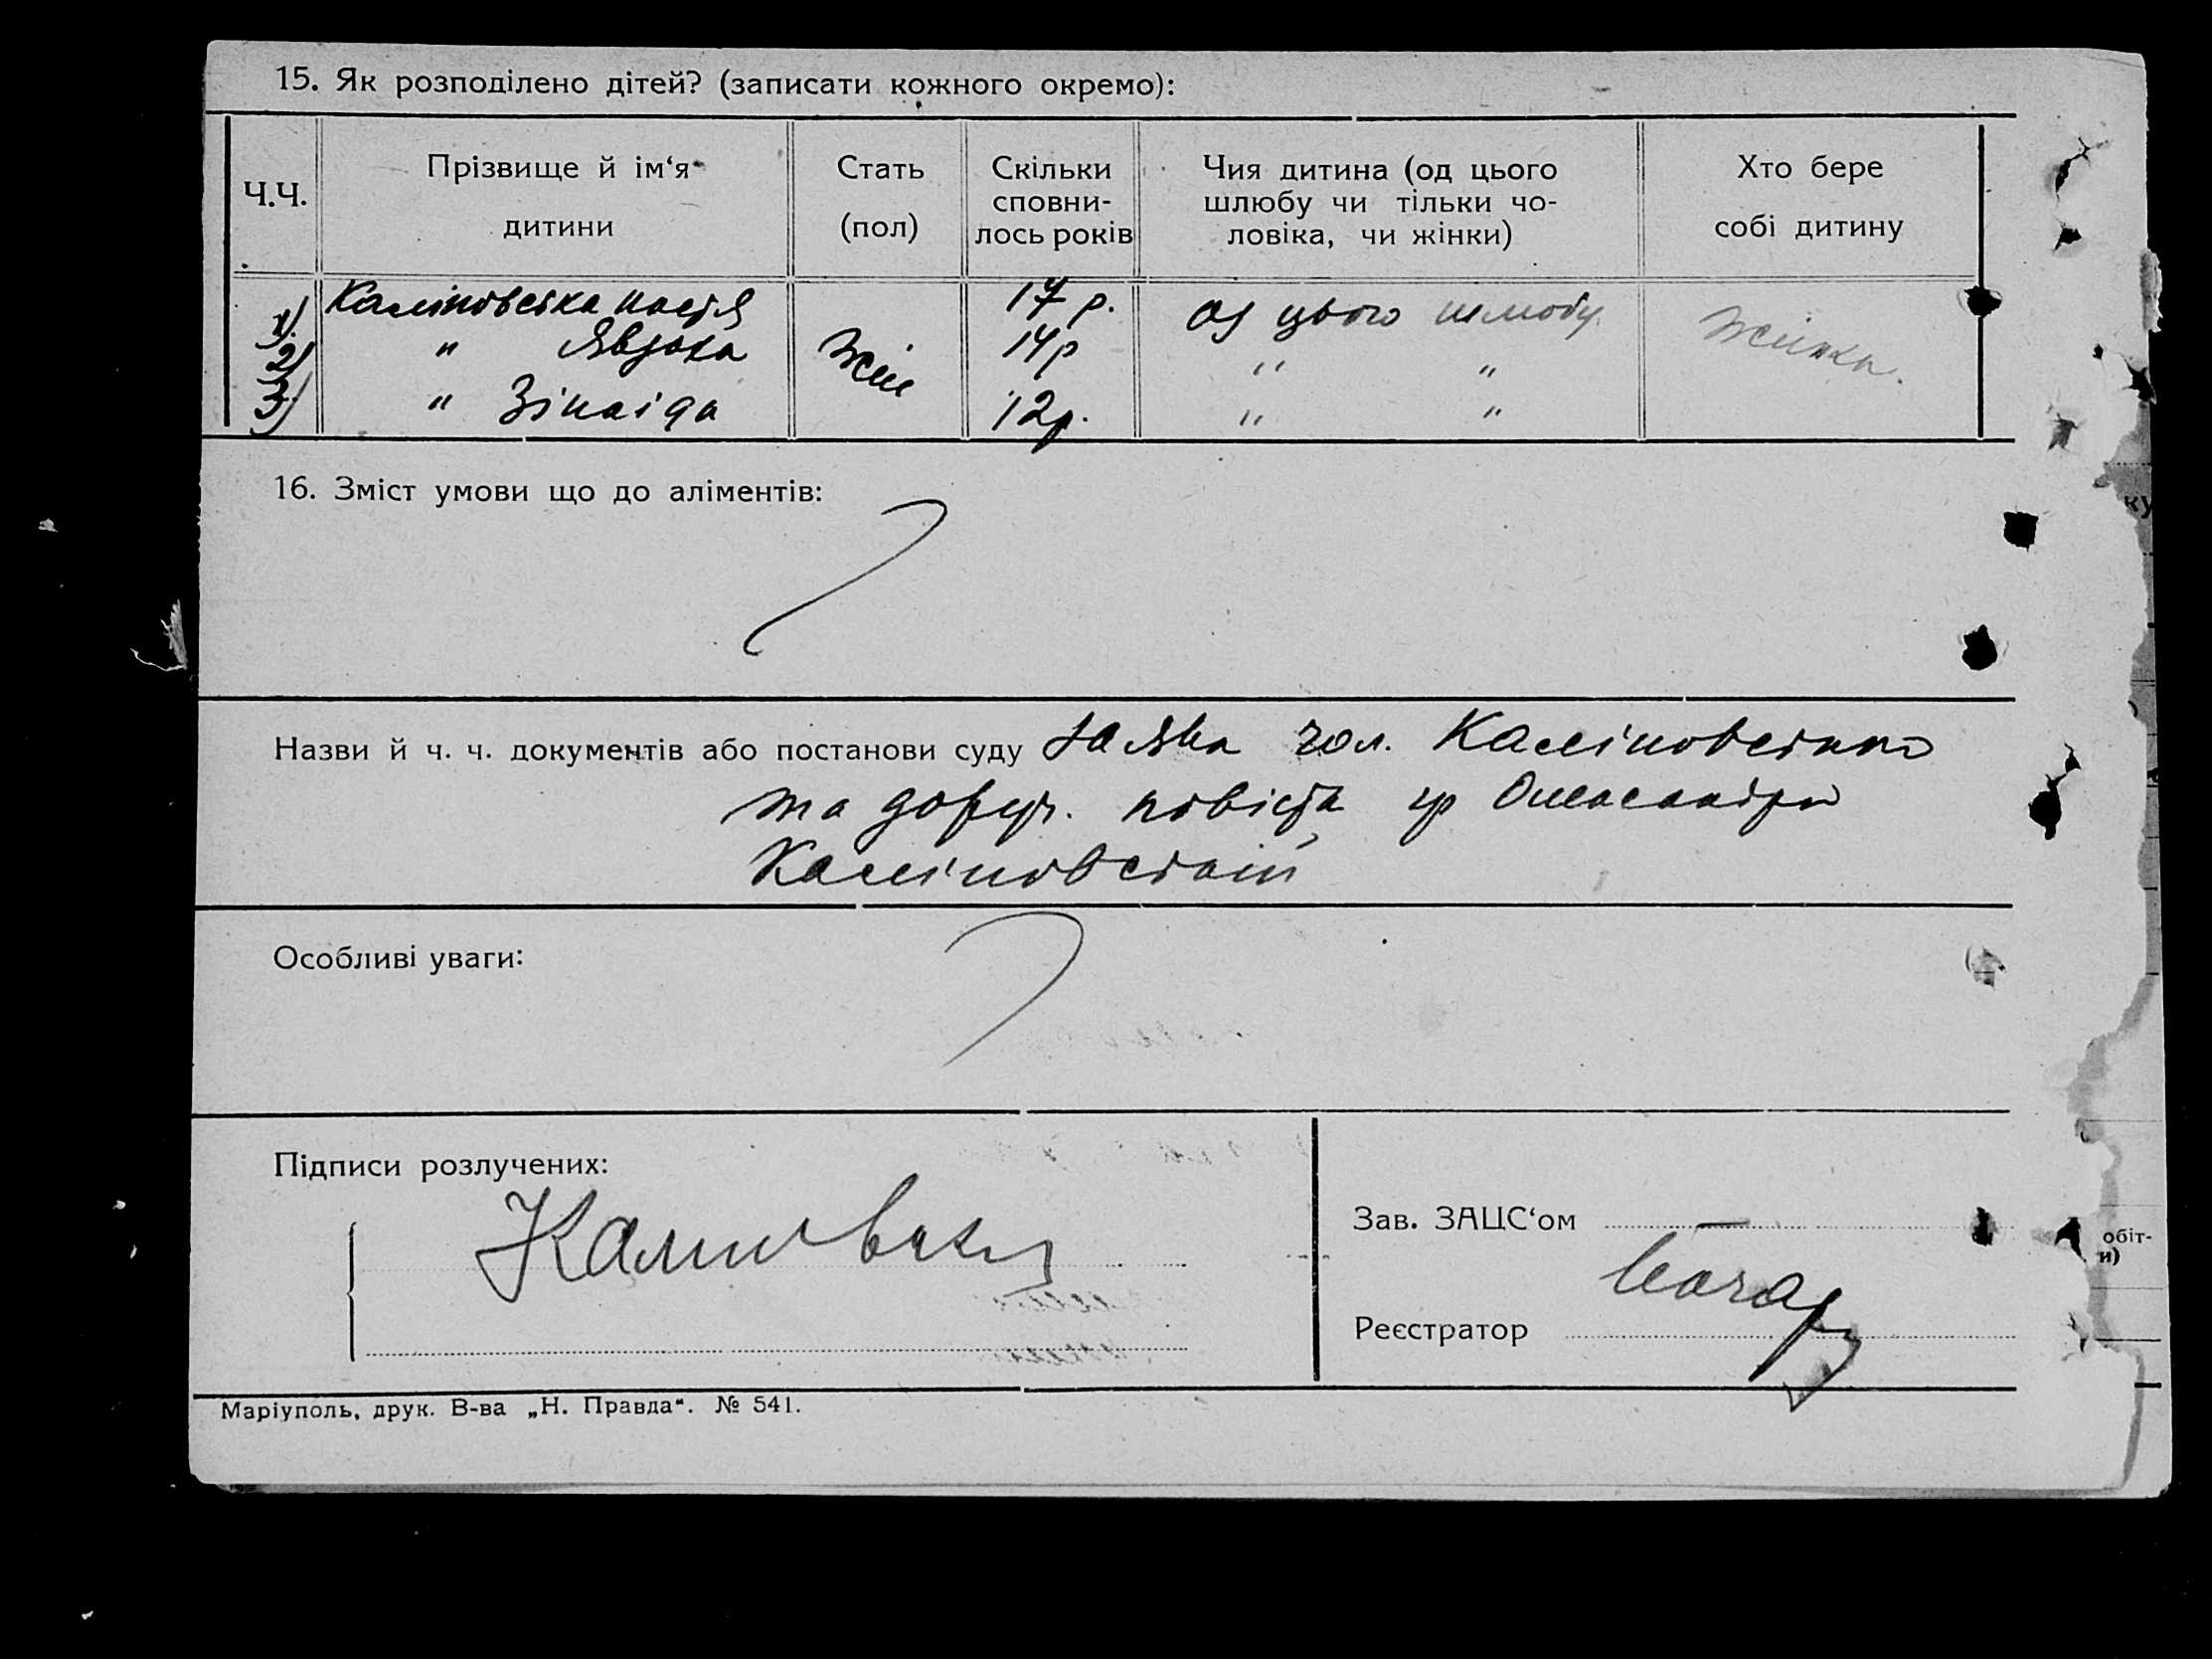 15. Як розподілено дітей? (записати кожного окремо):
Ч.Ч.
Прізвище й ім‘я
дитини
Стать
(пол)
Скільки
сповни-
лось років
Чия дитина (од цього
шлюбу чи тільки чо-
ловіка, чи жінки)
Хто бере
собі дитину
1) Каліновська Настя 17 р. од цього шлюбу
2) " Явдоха жін 14 р " " жінка.
3) " Зінаіда 12 р. " "
16. Зміст умови що до аліментів:
Назви й ч. ч. документів або постанови суду Заява чол. Каліновського
та доруч. повістка гр Олександри
Каліновській
Особливі уваги:
Підписи розлучених:
Калиновский
Зав. ЗАЦС‘ом
Реєстратор
Маріуполь, друк. В-ва „Н. Правда“. № 541.
обіт-
и)
ку